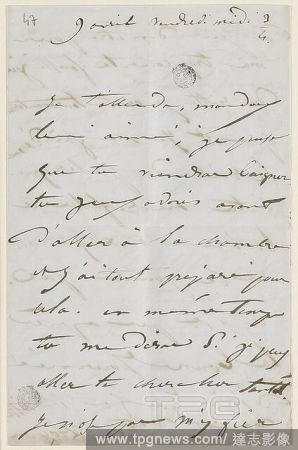 47
9 avril vendredi midi 3/4
Je t'attends, mon doux
bien aimé, je pense
que tu viendras baigner
tes yeux adorés avant
d'aller à la chambre
et j'ai tout préparé pour
cela. en même temps
tu me diras si je peux
aller te chercher tantôt.
Je n'ose pas m'y fier
www.tpgnews.com | 達志影像